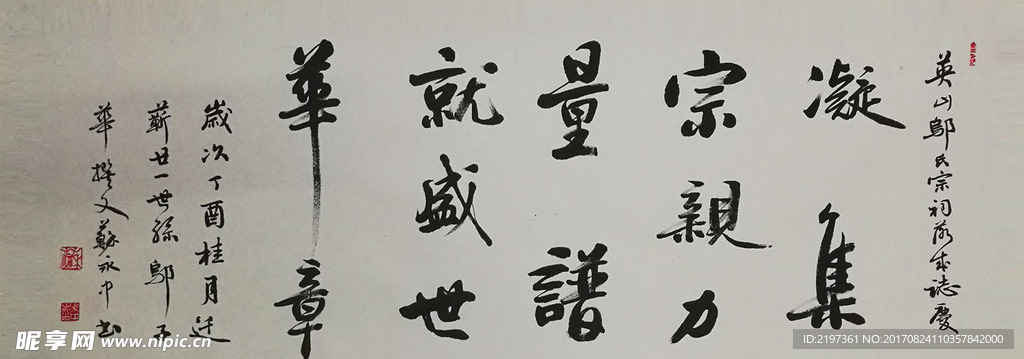 英山鄔氏宗祠落成誌慶
凝集
宗親力
量譜
就盛世
華章
歲次丁酉桂月迁
蘄廿一世孫鄔子
華撰文蘇永中书
昵享网 www.nipic.cn
ID:2197361 NO:20170824110357842000